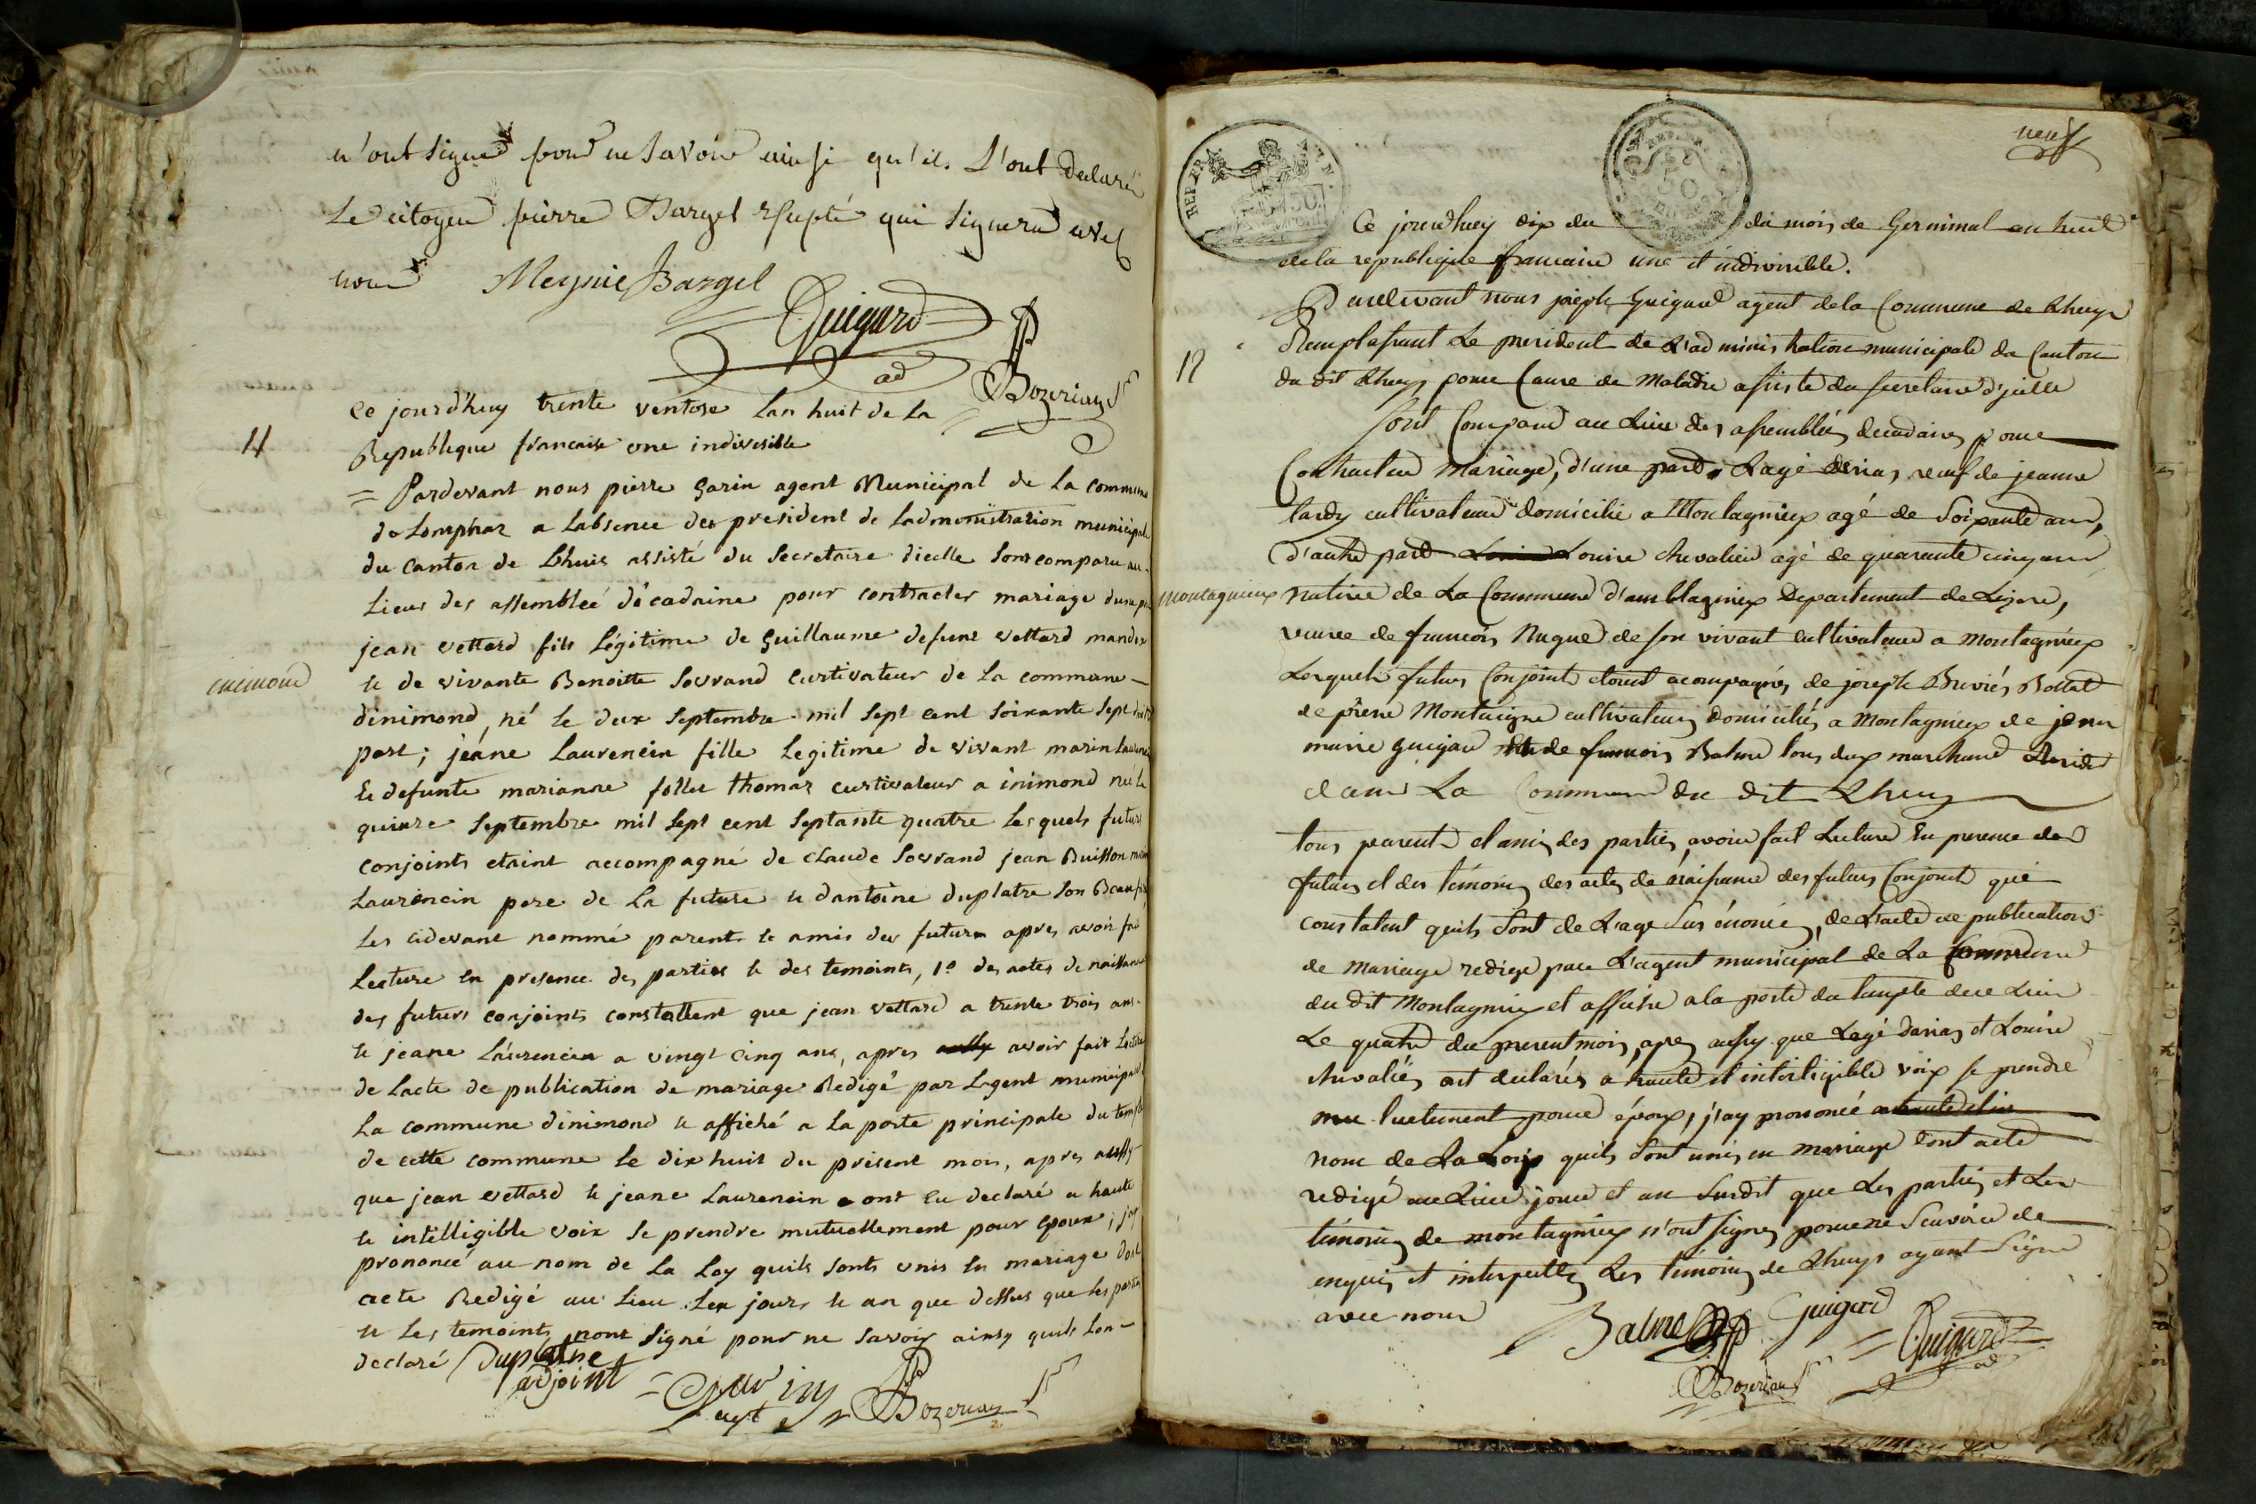 n'ont signé pour ne savoir ainsi qu'ils L'ont declaré
Le citoyen pierre Bargel excepté qui signera avec
nous Meynie Bargel
Guigard
ad
Bozerian
11
ce jourd'huy trente ventose Lan huit de La
Republique francaise one indivisible
= Pardevant nous pierre garin agent Municipal de La commune
de Lompnaz a Labsence des president de Ladmonistration municipale
du Canton de Lhuis assisté du Secretaire dicelle Sont comparu au
Lieux des assembleé décadaine pour contracter mariage dune part
jean vettard fils Légitime de guillaume defunt vettard
inimond
et de vivante Benoitte Sovrand Curtivateur de La commune
dinimond, né le deux Septembre mil Sept cent Soixante Sept
part; jeáne Laurencin fille Legitime de vivant marin Laurencin
et defunte marianne follet thomas curtivateur a inimond neé le
quinze Septembre mil Sept cent Septante quatre Les quels futurs
conjoints etaint accompagné de Claude Sovrand jean Buisson
Laurencin pere de La future et dantoine duplatre Son Beaufils
Les cidevant nommé parents et amis des futurs apres avoir fait
Lecture en presence des parties et des temoints, 1º des actes de naissance
des futurs conjoints constattent que jean vettard a trente trois ans
et jeane Láurencin a vingt Cinq ans, apres avoir fait Lecture
de Lacte de publication de mariage Rédigé par Lagent municipal
La commune dinimond et affiché a La porte principale du temple
de cette commune le dix huit du present mois, apres aussy
que jean vettard et jeane Laurencin ont Eu declaré a haute
et intelligible voix Se prendre mutuellement pour Epoux, jay
prononcé au nom de La Loy quils Sonts unis En mariage dont
acte Redigé au Lieu Les jours et an que dessus que Les parties
et Les temoints nont Signé pour ne Savoir ainsy quils Lon
declaré Duplatre
adjoint
Garin
agt
Bozerian
neuf
REP. FRA.
50
12
Ce jourdhuy dix du du mois de Germinal an huit
de la republique francaise une et indivisible.
Pardevant nous joseph Guigard agent de la Commune de Lhuys
Remplassant Le president de L'administration municipale du Canton
du dit Lhuys pour Cause de Maladie assisté du secretaire d'icelle
sont Comparu au Lieu des assemblées decadaires pour
Contracter Mariage, d'une part Lagé darias veuf de jeanne
tardy cultivateur domicilié a Montagnieux agé de Soixante ans,
d'autre part Louise chevalier agé de quarante cinq ans
montagnieux
native de La Commune d'amblagnieux Departement de Lizere,
veuve de francois Nugue de son vivant cultivateur a Montagnieux
Lesquels futurs Conjoints etoint acompagnés de joseph
de pierre Montaigne cultivateurs domiciliés a Montagnieux de jean
marie guigard et de francois Balme tous deux marchand
dans La Commune du dit Lhuys
tous parents et amis des parties, avoir fait Lecture En presence des
futurs et des témoins des actes de naissance des futurs Conjoint qui
constatent quils sont de L'age sus énoncé, de L'acte de publication
de Mariage redigé par L'agent municipal de La Commune
du dit Montagnieux et affiché a la porte du temple de ce Lieu
Le quatre du present mois, apres aussy que Lagé darias et Louise
chevaliér ont declarés a haute et intelligible voix se prendre
mutuellement pour époux, j'ay prononcé
nom de La Loix quils sont unis en mariage dont acte
redigé au Lieu jour et an susdit que Les parties et Les
témoins de montagnieux n'ont signés pour ne Scavoir de
enquis et interpellés Les témoins de Lhuys ayant signé
avec nous
Balme Guigard
Guigard
ad
Bozerian